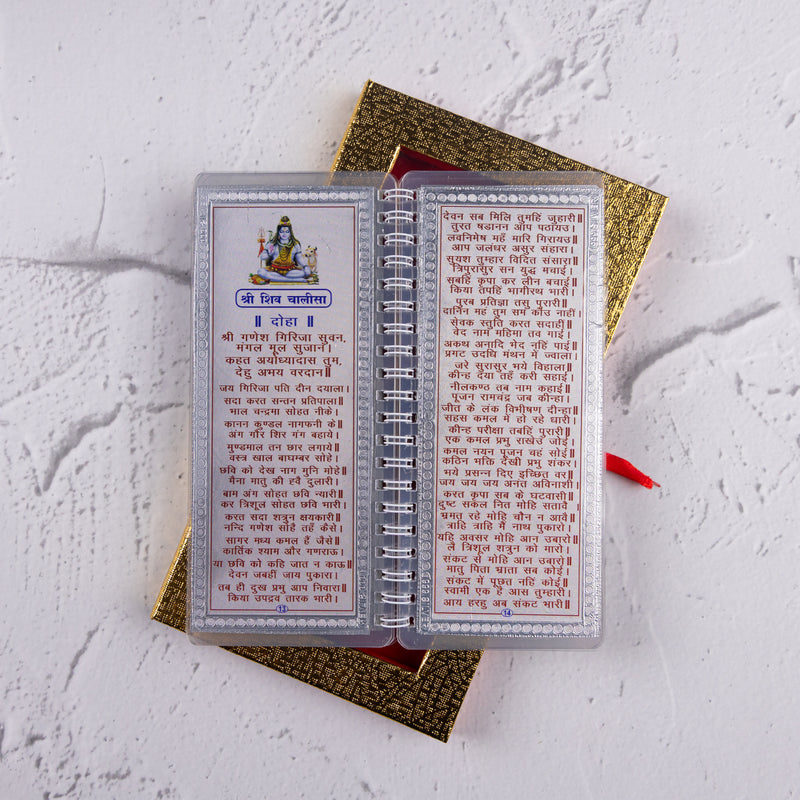 श्री शिव चालीसा
॥ दोहा ॥
श्री गणेश गिरिजा सुवन,
मंगल मूल सुजान।
कहत अयोध्यादास तुम,
देहु अभय वरदान॥
जय गिरिजा पति दीन दयाला।
सदा करत सन्तन प्रतिपाला॥
भाल चन्द्रमा सोहत नीके।
कानन कुण्डल नागफनी के॥
अंग गौर शिर गंग बहाये।
मुण्डमाल तन छार लगाये॥
वस्त्र खाल बाघम्बर सोहे।
छवि को देख नाग मुनि मोहे॥
मैना मातु की हवै दुलारी।
बाम अंग सोहत छवि न्यारी॥
कर त्रिशूल सोहत छवि भारी।
करत सदा शत्रुन क्षयकारी॥
नन्दि गणेश सोहै तहँ कैसे।
सागर मध्य कमल हैं जैसे॥
कार्तिक श्याम और गणराऊ।
या छवि को कहि जात न काऊ॥
देवन जबहीं जाय पुकारा।
तब ही दुख प्रभु आप निवारा॥
किया उपद्रव तारक भारी।
13
देवन सब मिलि तुमहिं जुहारी॥
तुरत षडानन आप पठायउ।
लवनिमेष महँ मारि गिरायउ॥
आप जलंधर असुर संहारा।
सुयश तुम्हार विदित संसारा॥
त्रिपुरासुर सन युद्ध मचाई।
सबहिं कृपा कर लीन बचाई॥
किया तपहिं भागीरथ भारी।
पुरब प्रतिज्ञा तसु पुरारी॥
दानिन मह तुम सम कोउ नाहीं।
सेवक स्तुति करत सदाहीं॥
वेद नाम महिमा तव गाई।
अकथ अनादि भेद नहिं पाई॥
प्रगट उदधि मंथन में ज्वाला।
जरे सुरासुर भये विहाला॥
कीन्ह दया तहँ करी सहाई।
नीलकण्ठ तब नाम कहाई॥
पूजन रामचंद्र जब कीन्हा।
जीत के लंक विभीषण दीन्हा॥
सहस कमल में हो रहे धारी।
कीन्ह परीक्षा तबहिं पुरारी॥
एक कमल प्रभु राखेउ जोई।
कमल नयन पूजन चह सोई॥
कठिन भक्ति देखी प्रभु शंकर।
भये प्रसन्न दिए इच्छित वर॥
जय जय जय अनंत अविनाशी।
करत कृपा सब के घटवासी॥
दुष्ट सकल नित मोहि सतावै।
भ्रमत रहे मोहि चौन न आवै॥
त्राहि त्राहि मैं नाथ पुकारो।
यहि अवसर मोहि आन उबारो॥
ले त्रिशूल शत्रुन को मारो।
संकट से मोहि आन उबारो॥
मातु पिता भ्राता सब कोई।
संकट में पूछत नहिं कोई॥
स्वामी एक है आस तुम्हारी।
आय हरहु अब संकट भारी॥
14